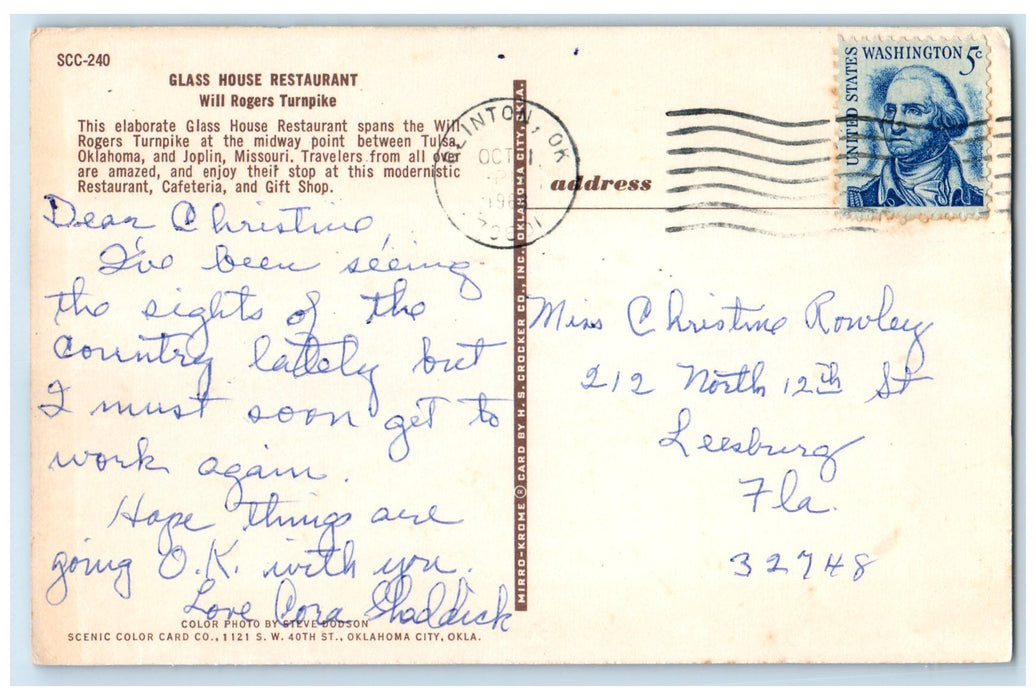 SCC-240
GLASS HOUSE RESTAURANT
Will Rogers Turnpike
This elaborate Glass House Restaurant spans the Will
Rogers Turnpike at the midway point between Tulsa,
Oklahoma, and Joplin, Missouri. Travelers from all over
are amazed, and enjoy their stop at this modernistic
Restaurant, Cafeteria, and Gift Shop.
Dear Christine,
I've been seeing
the sights of the
Country lately but
I must soon get to
work again.
Hope things are
going O.K. with you.
Love Cora Shaddick
COLOR PHOTO BY STEVE DODSON
SCENIC COLOR CARD CO., 1121 S. W. 40TH ST., OKLAHOMA CITY, OKLA.
MIRRO-KROME ® CARD BY H. S. CROCKER CO., INC. OKLAHOMA CITY, LA.
CLINTON, OK
OCT 1
address
UNITED STATES
WASHINGTON 5c
Miss Christine Rowley
212 North 12th St
Leesburg
Fla.
32748